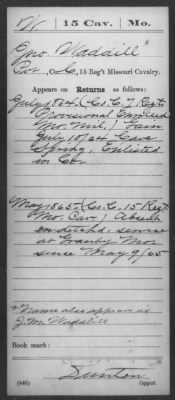 W | 15 Cav. | Mo.
Geo Waddill*
Co. C, 15 Reg't Missouri Cavalry.
Appears on Returns as follows:
July 1864 (Co. C. 7 Regt
Provisional Enrolled
Mo. Mil.) Gain
July 64 Cave
Spring, Enlisted
in Co.
May 1865 (Co. C. 15 Regt
Mo. Cav.) Absent
on detchd. service
at Granby Mo.
since May 9/65
*Name also appears as
J. M. Waddill
Book mark:
Dunton
(646) Copyist.